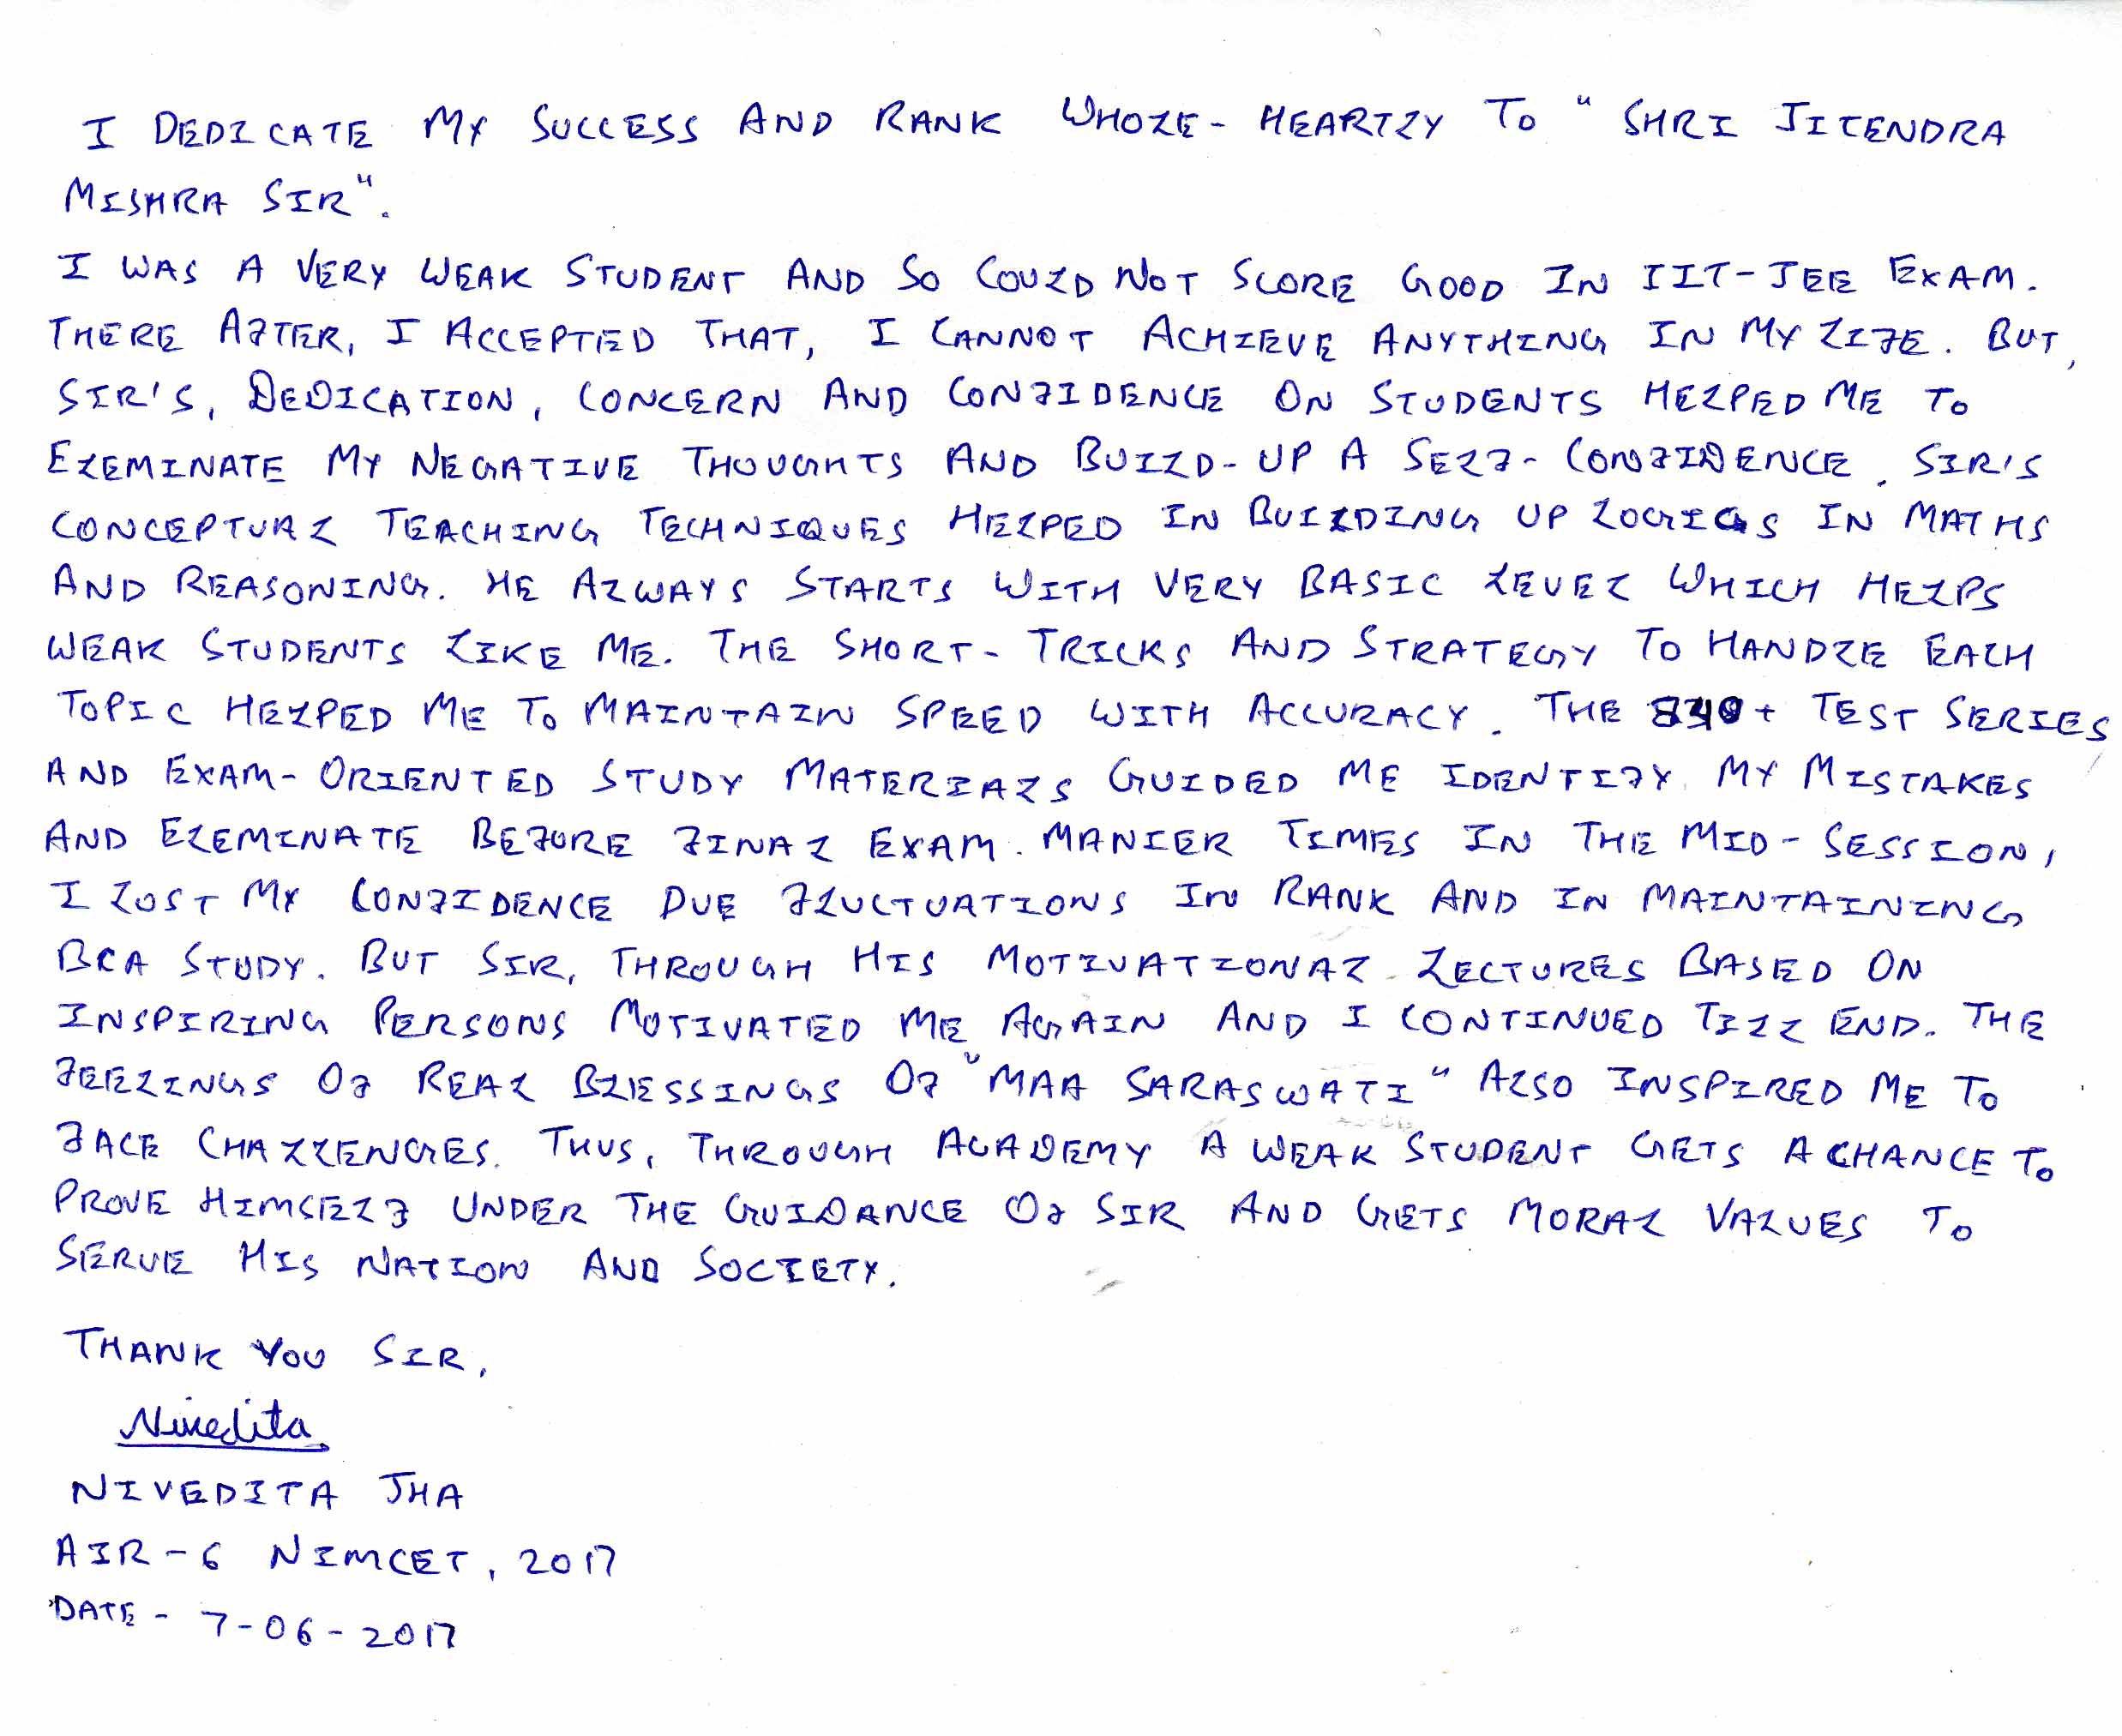 I DEDICATE MY SUCCESS AND RANK WHOLE- HEARTLY TO "SHRI JITENDRA
MISHRA SIR".
I WAS A VERY WEAK STUDENT AND SO COULD NOT SCORE GOOD IN IIT-JEE EXAM.
THERE AFTER, I ACCEPTED THAT, I CANNOT ACHIEVE ANYTHING IN MY LIFE. BUT,
SIR'S, DEDICATION, CONCERN AND CONFIDENCE ON STUDENTS HELPED ME TO
ELEMINATE MY NEGATIVE THOUGHTS AND BUILD-UP A SELF-CONFIDENCE. SIR'S
CONCEPTUAL TEACHING TECHNIQUES HELPED IN BUILDING UP LOGICS IN MATHS
AND REASONING. HE ALWAYS STARTS WITH VERY BASIC LEVEL WHICH HELPS
WEAK STUDENTS LIKE ME. THE SHORT-TRICKS AND STRATEGY TO HANDLE EACH
TOPIC HELPED ME TO MAINTAIN SPEED WITH ACCURACY. THE TEST SERIES
AND EXAM-ORIENTED STUDY MATERIALS GUIDED ME IDENTIFY MY MISTAKES
AND ELEMINATE BEFORE FINAL EXAM. MANIER TIMES IN THE MID-SESSION,
I LOST MY CONFIDENCE DUE FLUCTUATIONS IN RANK AND IN MAINTAINING
BCA STUDY. BUT SIR, THROUGH HIS MOTIVATIONAL LECTURES BASED ON
INSPIRING PERSONS MOTIVATED ME AGAIN AND I CONTINUED TILL END. THE
FEELINGS OF REAL BLESSINGS OF "MAA SARASWATI" ALSO INSPIRED ME TO
FACE CHALLENGES. THUS, THROUGH ACADEMY A WEAK STUDENT GETS A CHANCE TO
PROVE HIMSELF UNDER THE GUIDANCE OF SIR AND GETS MORAL VALUES TO
SERVE HIS NATION AND SOCIETY.
THANK YOU SIR,
Nivedita
NIVEDITA JHA
AIR-6 NIMCET, 2017
DATE - 7-06-2017